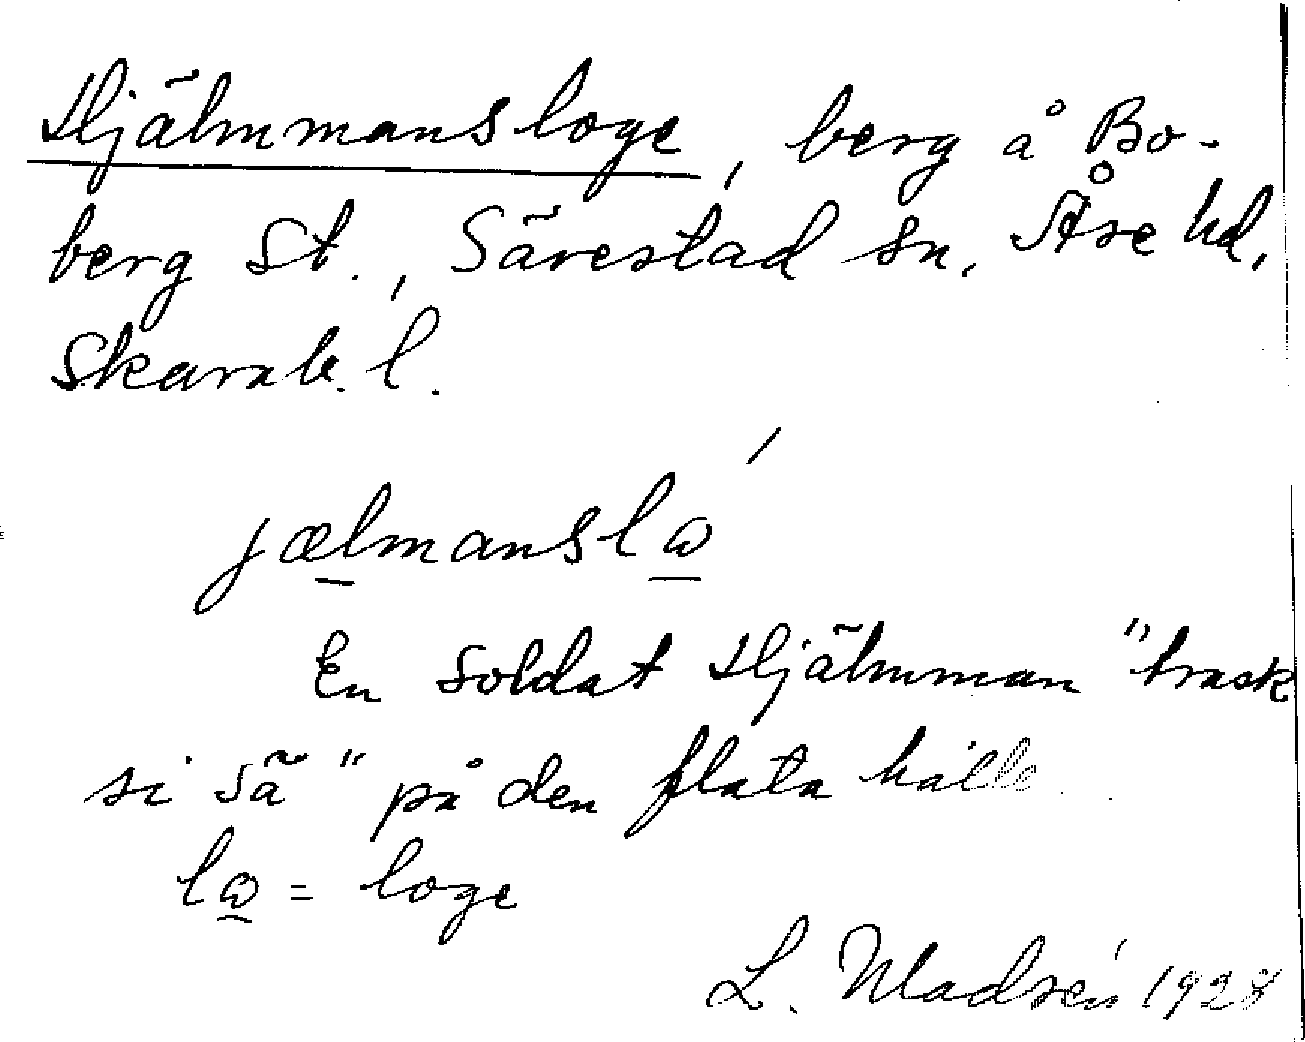 Hjälmmansloge, berg å Bo-
berg St., Särestad sn, Åse hd,
Skarab. l.
jælmanslω
En soldat Hjälmman "trask
si sä" på den flata häll
lω = loge
L. 1928